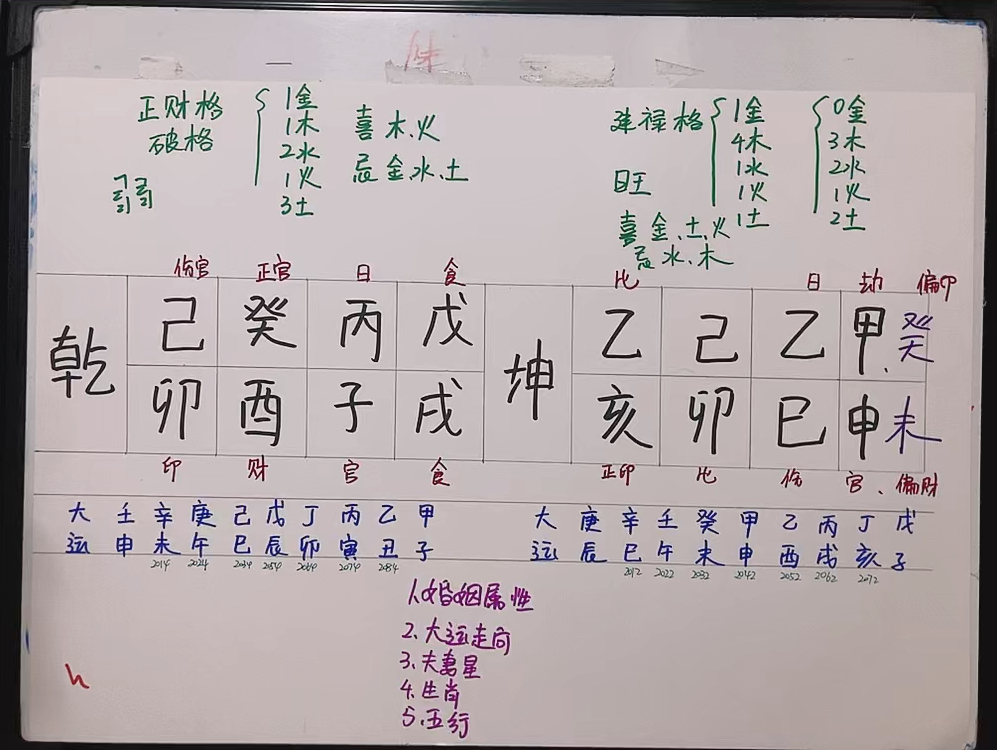 正财格
破格
弱
1金
1木
2水
1火
3土
喜木、火
忌金、水、土
建禄格
旺
喜金、土、火
忌水、木
1金
4木
1水
1火
1土
0金
3木
2水
1火
2土
伤官 正官 日 食
乾 己 癸 丙 戊
卯 酉 子 戌
印 财 官 食
比 日 劫 偏印
坤 乙 己 乙 甲、癸
亥 卯 巳 申 未
正印 比 伤 官、偏财
大 壬 辛 庚 己 戊 丁 丙 乙 甲
运 申 未 午 巳 辰 卯 寅 丑 子
2014 2024 2034 2054 2064 2074 2084
大 庚 辛 壬 癸 甲 乙 丙 丁 戊
运 辰 巳 午 未 申 酉 戌 亥 子
2012 2022 2032 2042 2052 2062 2072
1.婚姻属性
2.大运走向
3.夫妻星
4.生肖
5.五行
h